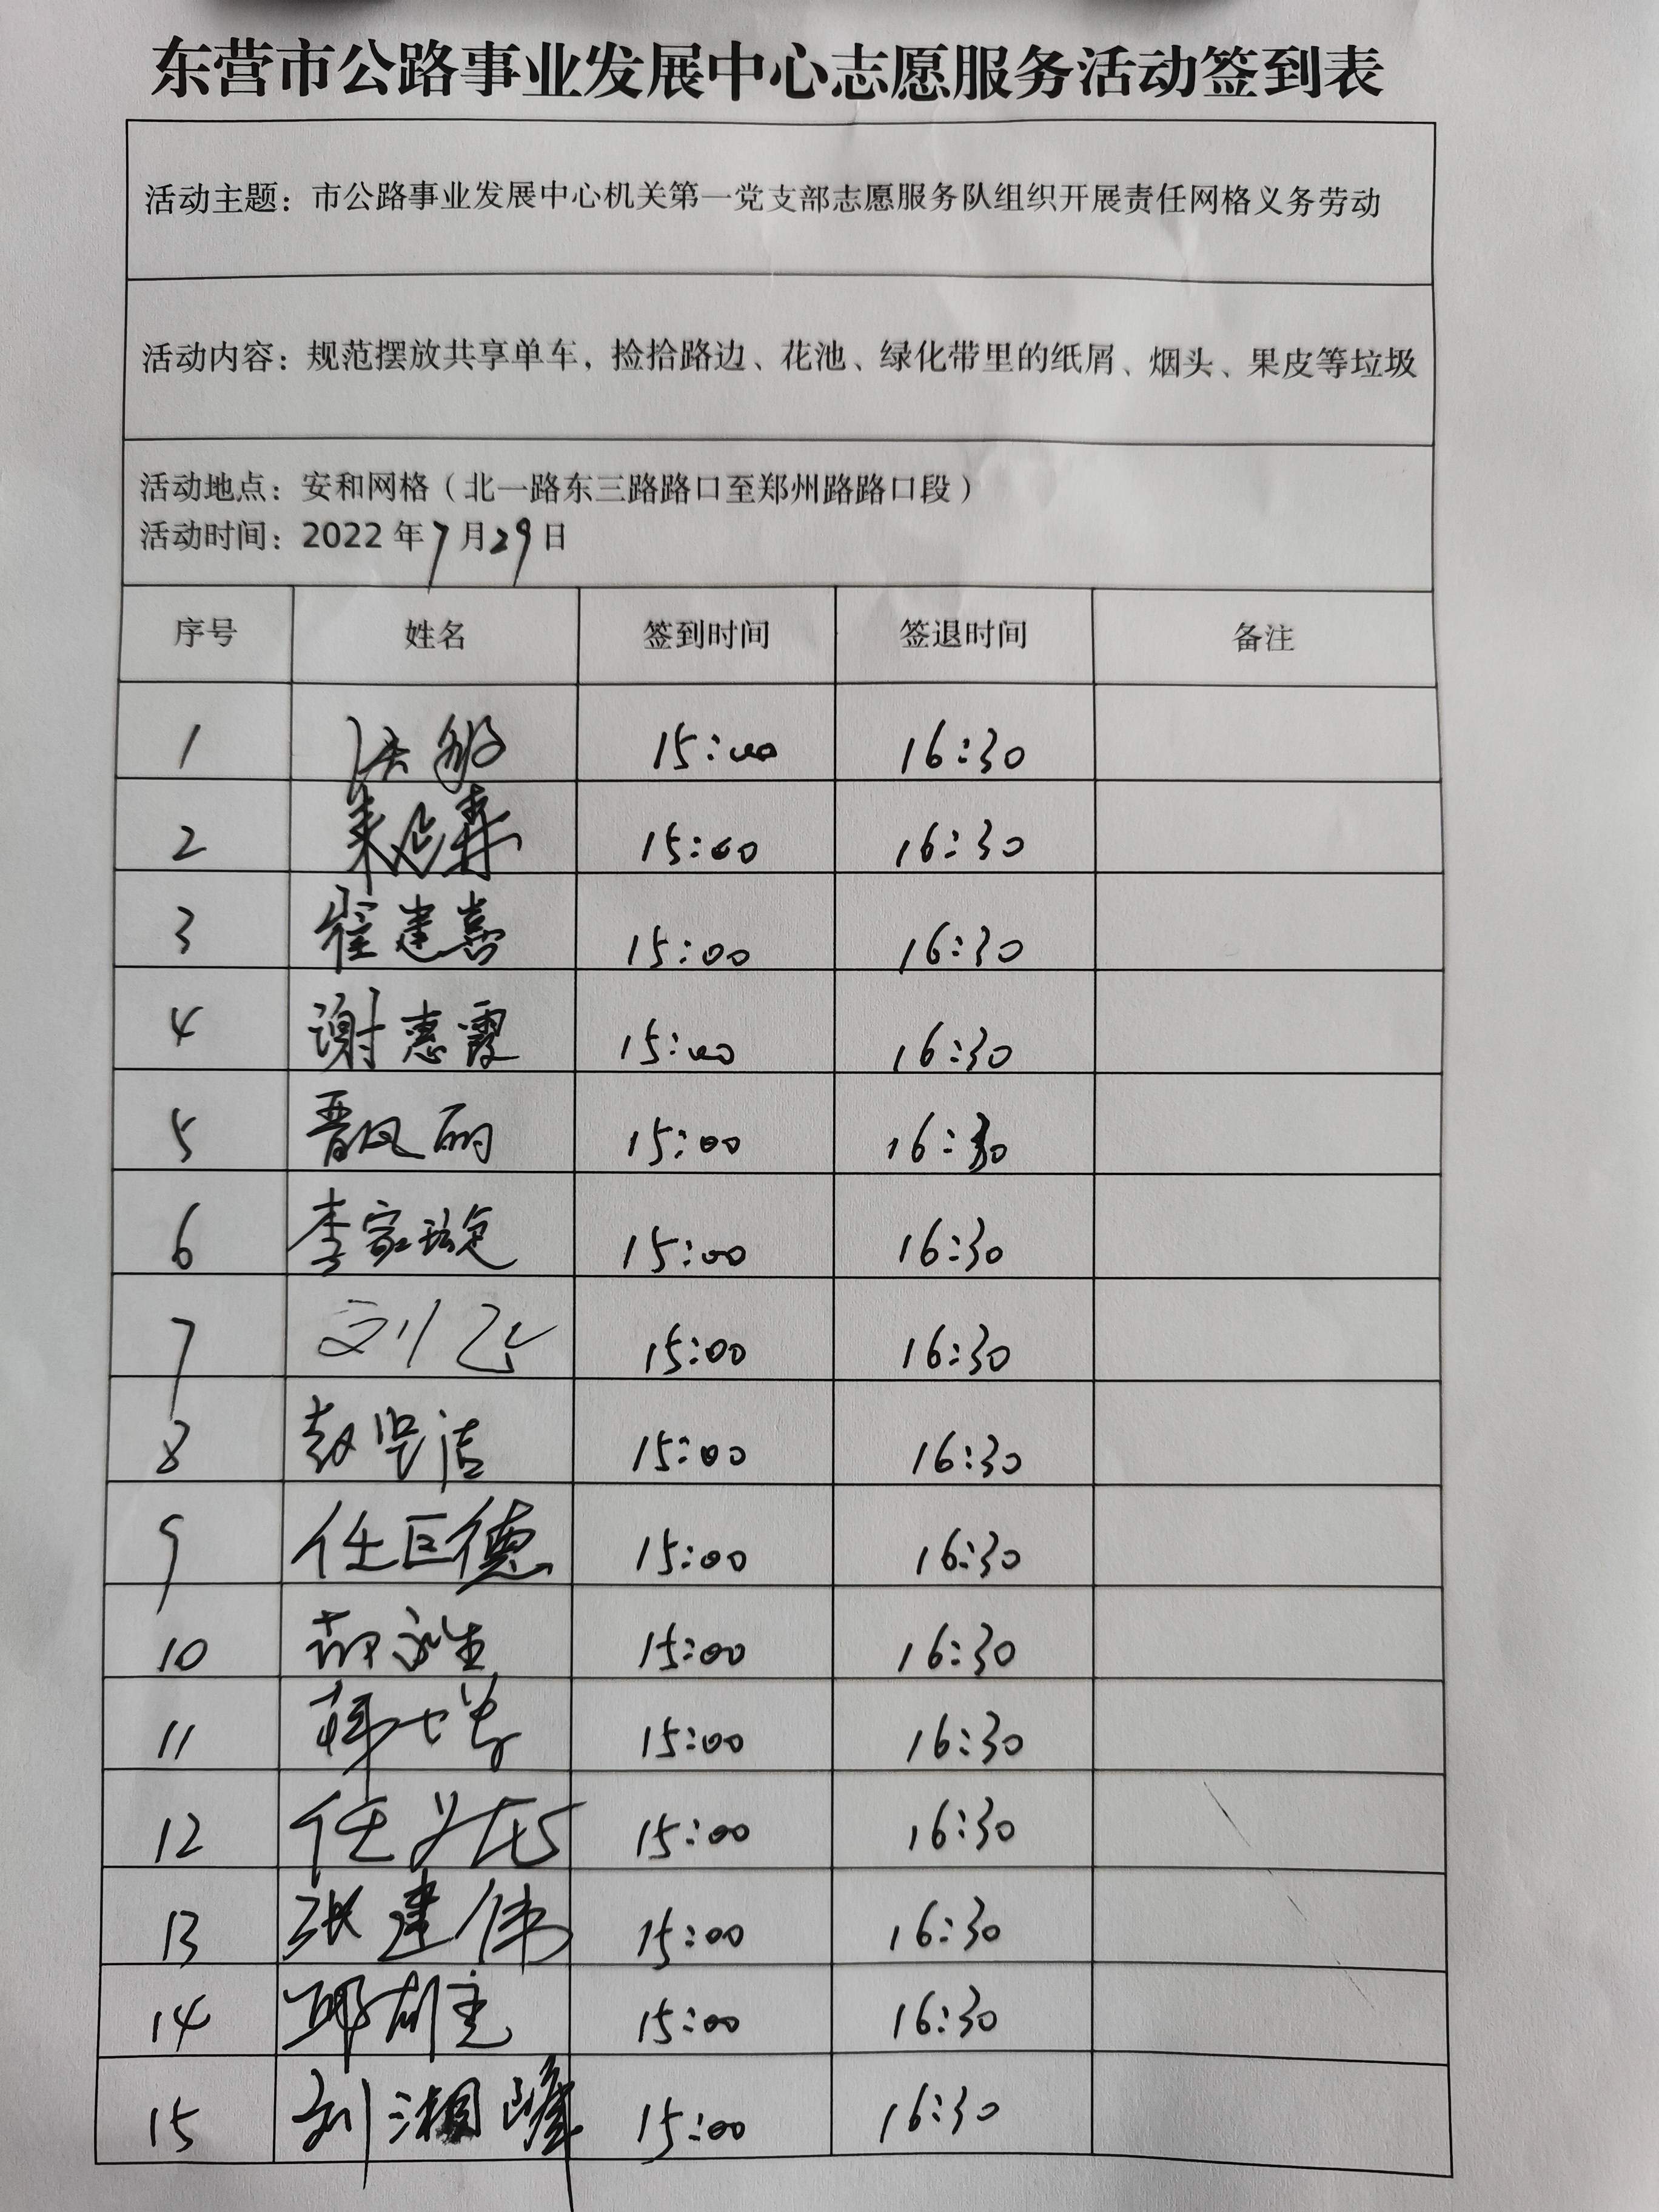 东营市公路事业发展中心志愿服务活动签到表
活动主题：市公路事业发展中心机关第一党支部志愿服务队组织开展责任网格义务劳动
活动内容：规范摆放共享单车，捡拾路边、花池、绿化带里的纸屑、烟头、果皮等垃圾
活动地点：安和网格（北一路东三路路口至郑州路路口段）
活动时间：2022年7月29日
序号 姓名 签到时间 签退时间 备注
1 15:00 16:30
2 15:00 16:30
3 崔建喜 15:00 16:30
4 谢惠霞 15:00 16:30
5 晋凤丽 15:00 16:30
6 李家璇 15:00 16:30
7 刘飞 15:00 16:30
8 赵 洁 15:00 16:30
9 任巨德 15:00 16:30
10 15:00 16:30
11 15:00 16:30
12 任 15:00 16:30
13 张建伟 15:00 16:30
14 15:00 16:30
15 刘湘 15:00 16:30